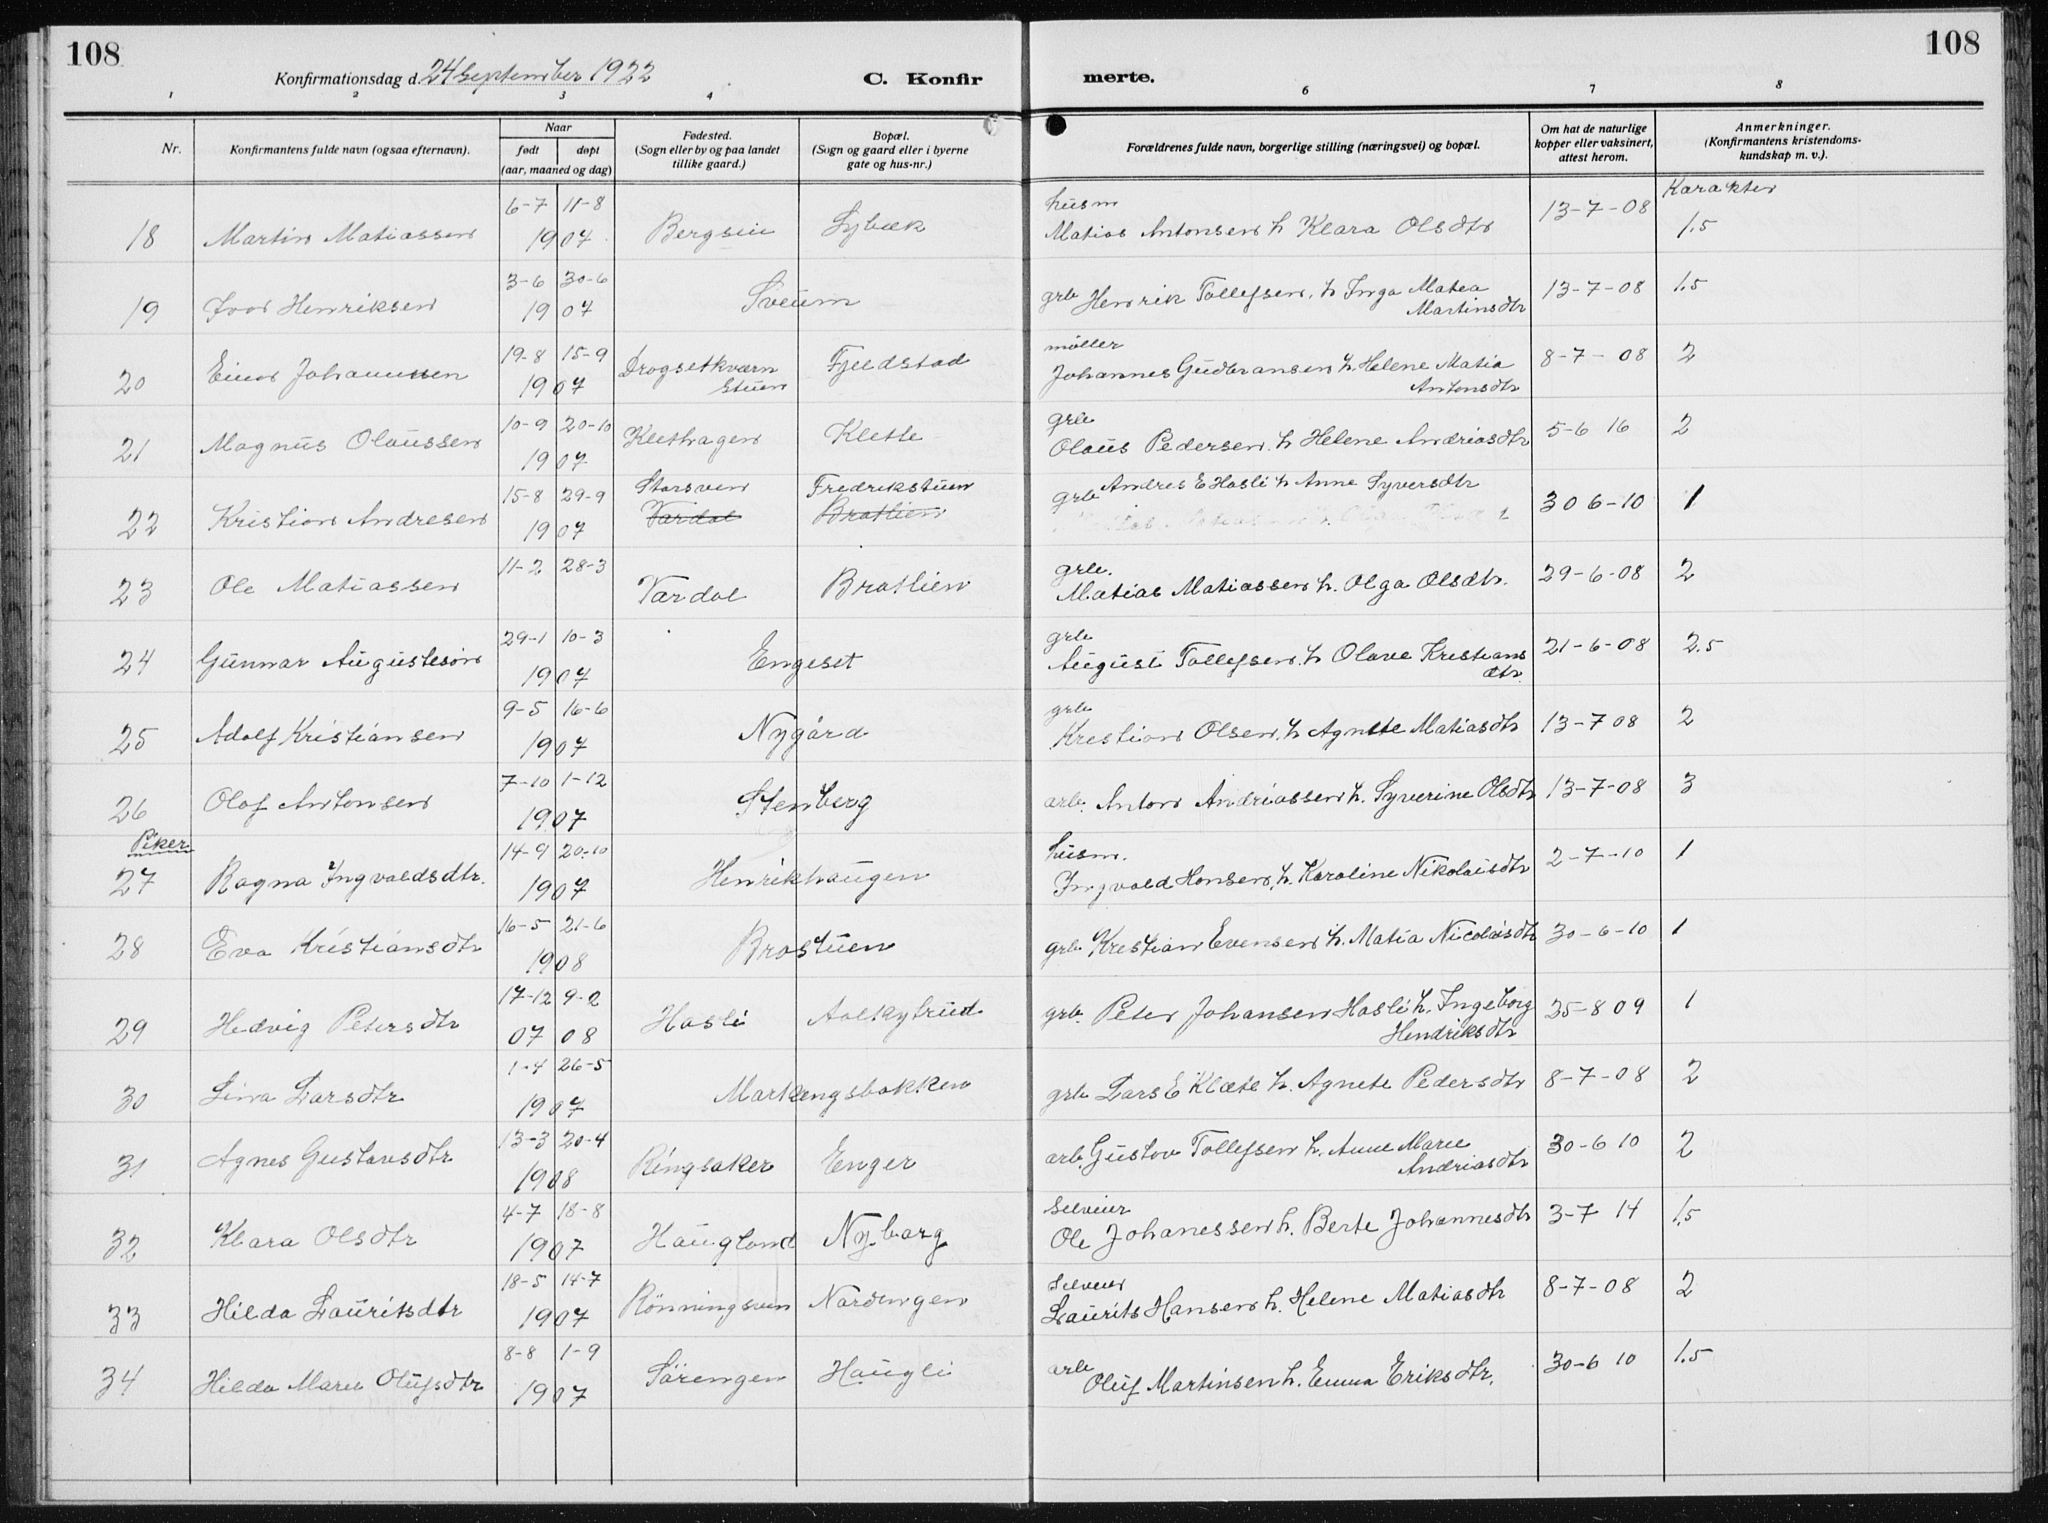 108
108
Konfirmationsdag d. 24 September 1922
C. Konfir
merte.
1 2 3 4 6 7 8
Nr.
Konfirmantens fulde navn (ogsaa efternavn).
Naar
født døpt
(aar, maaned og dag)
Fødested.
(Sogn eller by og paa landet
tillike gaard.)
Bopæl.
(Sogn og gaard eller i byerne
gate og hus-nr.)
Forældrenes fulde navn, borgerlige stilling (næringsvei) og bopæl.
Om hat de naturlige
kopper eller vaksinert,
attest herom.
Anmerkninger.
(Konfirmantens kristendoms-
kundskap m. v.).
Karakter
6-7 11-8 husm 13-7-08
18 Martin Matiassen 1907 Bergseie Sybæk Matias Antonsen h Klara Olsdtr 1.5
3-6 30-6
19 Ivar Henriksen 1907 Sveum grb Henrik Tollefsen, h Inga Matea 13-7-08 1.5
Martinsdtr
19-8 15-9 møller
20 Einar Johannessen 1907 Drogsetkværn Fjeldstad Johannes Gudbransen h. Helene Matia 8-7-08 2
stuen Antonsdtr
10-9 20-10 grb
21 Magnus Olaussen 1907 Klethagen Klette Olaus Pedersen h Helene Andriasdtr 5-6 16 2
15-8 29-9 Storsven Fredrikstuen grb Andres E Hasli h Anne Syversdtr
22 Kristian Andresen 1907 Vardal Bratlien 30 6-10 1
11-2 28-3 grb.
23 Ole Matiassen Vardal Bratlien Matias Matiassen h. Olga Olsdtr. 29-6-08 2
29-1 10-3 grb
24 Gunnar Augustesøn 1907 Engeset August Tollefsen h Olave Kristians 21-6-08 2.5
dtr.
9-5 16-6 grb
25 Adolf Kristiansen 1907 Nygård Kristian Olsen, h Agnete Matiasdtr 13-7 08 2
7-10 1-12
26 Olaf Antonsen 1907 Stenberg arb. Anton Andriassen h. Syverine Olsdtr 13-7-08 3
Piker
14-9 20-10 husm.
27 Ragna Ingvaldsdtr. 1907 Henrikhaugen Ingvald Hansen, h. Karoline Nikolaisdtr 2-7-10 1
16-5 21-6
28 Eva Kristiansdtr 1908 Brostuen grb. Kristian Evensen h. Matia Nicolaisdtr 30-6-10 1
17-12 9-2
29 Hedvig Petersdtr 07 08 Hasli Aalkytrud grb. Peter Johansen Hasli h. Ingeborg 25-8 09 1
Hendriksdtr
1-4 26-5
30 Lina Larsdtr 1907 Markengsbakken grb Lars E Klæte h. Agnete Pedersdtr 8-7-08 2
13-3 20-4
31 Agnes Gustavsdtr 1908 Ringsaker Enger arb. Gustav Tollefsen h. Anne Marie 30-6 10 2
Andriasdtr
4-7 18-8 selveier
32 Klara Olsdtr 1907 Haugland Nyborg Ole Johanessen h. Berte Johannesdtr 3-7 14 1,5
18-5 14-7 selveier
33 Hilda Lauritsdtr 1907 Rönningsven Nardengen Laurits Hansen h. Helene Matiasdtr 8-7-08 2
8-8 1-9 arb
34 Hilda Marie Olufsdtr 1907 Sörengen Haugli Oluf Martinsen h. Emma Eriksdtr. 30-6 10 1.5